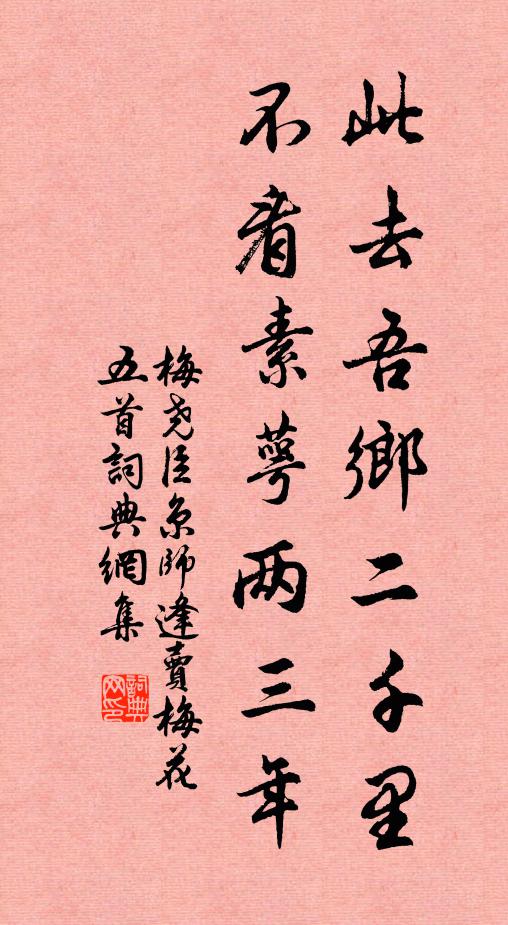 此去吾鄉二千里
不看素萼两三年
梅尧臣京師逢賣梅花
五首詞典網集
詞典
网印